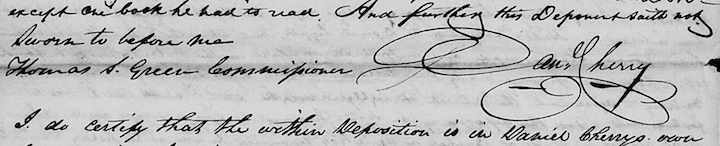 except one book he had to read. And further this Deponent saith not
Sworn to before me
Thomas S. Green Commissioner Danl Cherry
I do certify that the within Deposition is in Daniel Cherrys own